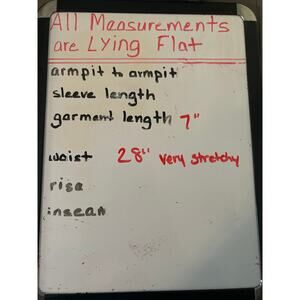 All Measurements
are Lying Flat
armpit to armpit
sleeve length
garment length 7"
waist 28" very stretchy
rise
inseam